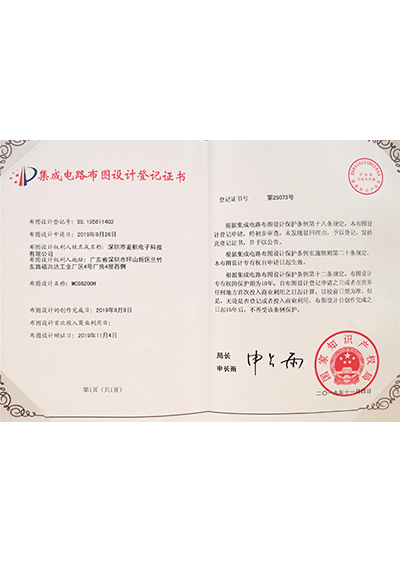 集成电路布图设计登记证书
布图设计登记号: BS.195611403
布图设计申请日: 2019年9月26日
布图设计权利人姓名或名称: 深圳市麦积电子科技
有限公司
布图设计权利人地址: 广东省深圳市坪山新区兰竹
东路福兴达工业厂区4号厂房4层西侧
布图设计名称: MCS6200H
布图设计的创作完成日: 2019年8月9日
布图设计首次投入商业利用日:
布图设计颁证日: 2019年11月4日
第1页（共1页）
登记证书号 第25073号
根据集成电路布图设计保护条例第十八条规定，本布图设
计登记申请，经初步审查，未发现驳回理由，予以登记，发给
此登记证书，并予以公告。
根据集成电路布图设计保护条例实施细则第二十条规定，
本布图设计专有权自申请日起生效。
根据集成电路布图设计保护条例第十二条规定，布图设计
专有权的保护期为10年，自布图设计登记申请之日或者在世界
任何地方首次投入商业利用之日起计算，以较前日期为准。
但是，无论是否登记或者投入商业利用，布图设计自创作完成之
日起15年后，不再受该条例保护。
局长
申长雨
国家知识产权局
二〇一九年十一月四日